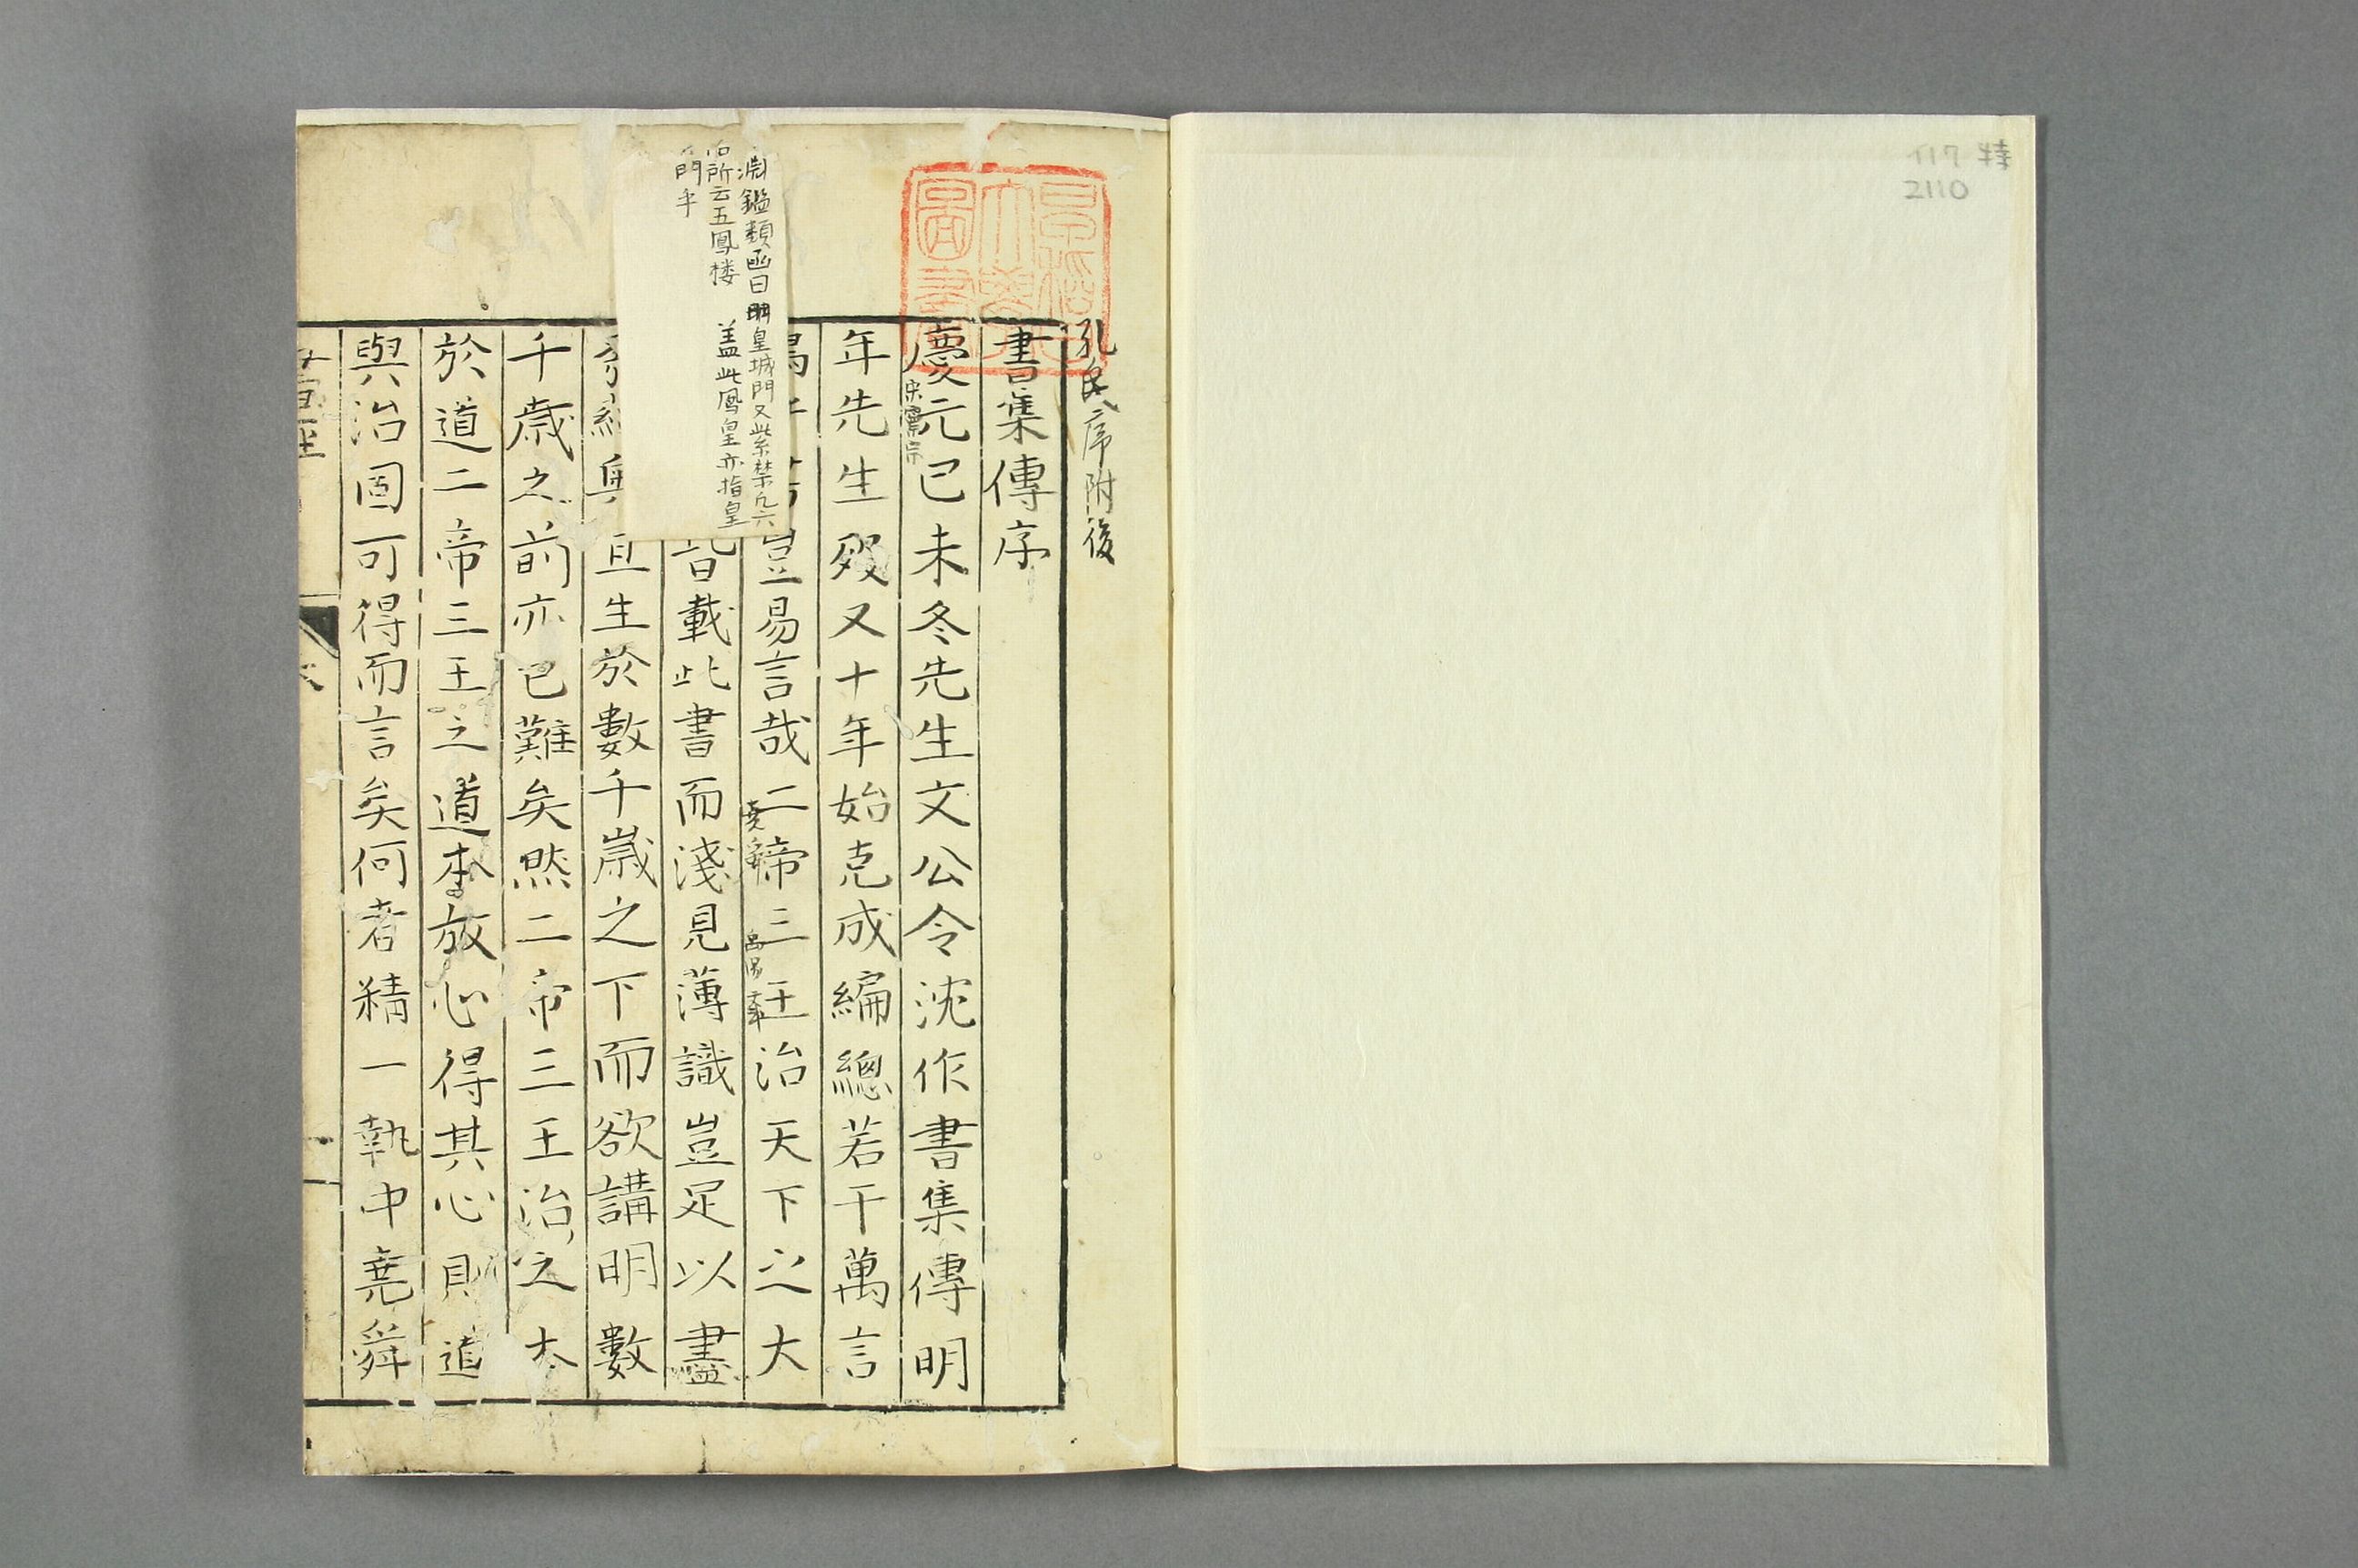 特
2110
孔氏序附後
書集傳序
慶元已未冬先生文公令沈作書集傳明
宋寧宗
年先生歿又十年始克成編總若干萬言
豈易言哉二帝三王治天下之大
堯舜
禹湯文武
皆載此書而淺見薄識豈足以盡
且生於數千歲之下而欲講明數
千歲之前亦已難矣然二帝三王治之本
於道二帝三王之道本於心得其心則道
與治固可得而言矣何者精一執中堯舜
淵鑑類函曰明皇城門又紫禁凡六
所云五鳳楼 盖此鳳皇亦指皇
門乎